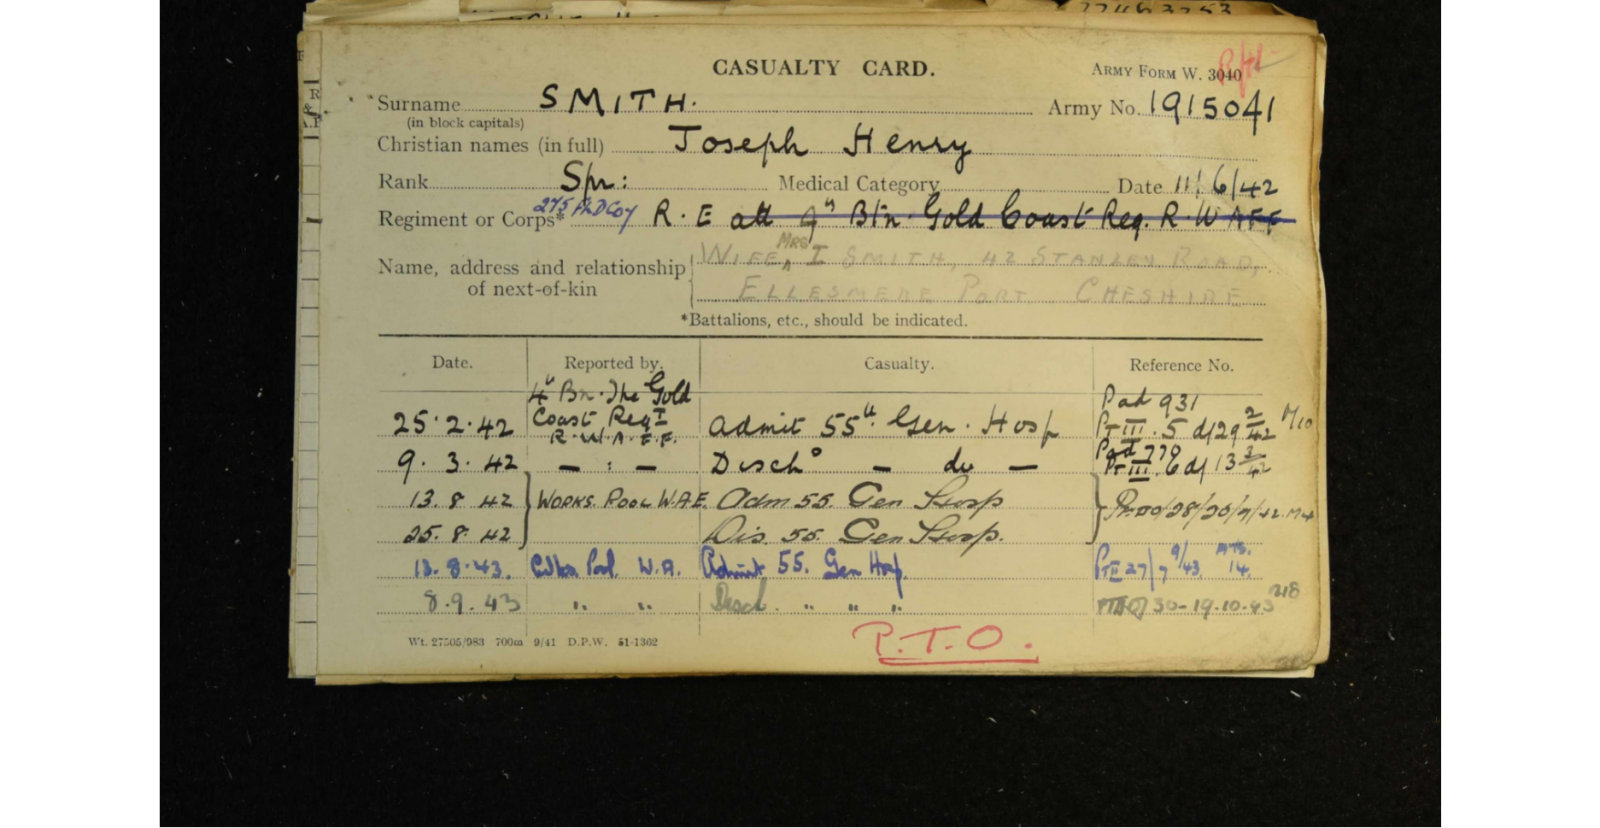 CASUALTY CARD.
ARMY FORM W. 3040
Surname SMITH. Army No. 1915041
(in block capitals)
Christian names (in full) Joseph Henry
Rank Spr: Medical Category Date 11/6/42
Regiment or Corps* R.E att Btn. Gold Coast Reg. R.W.A.F.F
Name, address and relationship of next-of-kin
WIFE, MRS I SMITH, 42 STANLEY ROAD,
ELLESMERE PORT CHESHIRE
*Battalions, etc., should be indicated.
Date. Reported by. Casualty. Reference No.
Bn. The Gold Pad 931
25.2.42 Coast Regt Admit 55th Gen. Hosp Pt III. 5 d/29
R.W.A.F.F.
9.3.42 — : — Disch — do — Pt III. 6 d/ 13
13.8.42 WORKS. POOL W.A.F. Adm 55. Gen Hosp
25.8.42 Dis. 55. Gen Hosp.
13.8.43. Pool. W.A. Admit 55. Gen Hosp. 27/ 9/43 14.
8.9.43 " " Disch. " " " 30-19.10.43
Wt. 27505/983 700m 9/41 D.P.W. 51-1362
P.T.O.